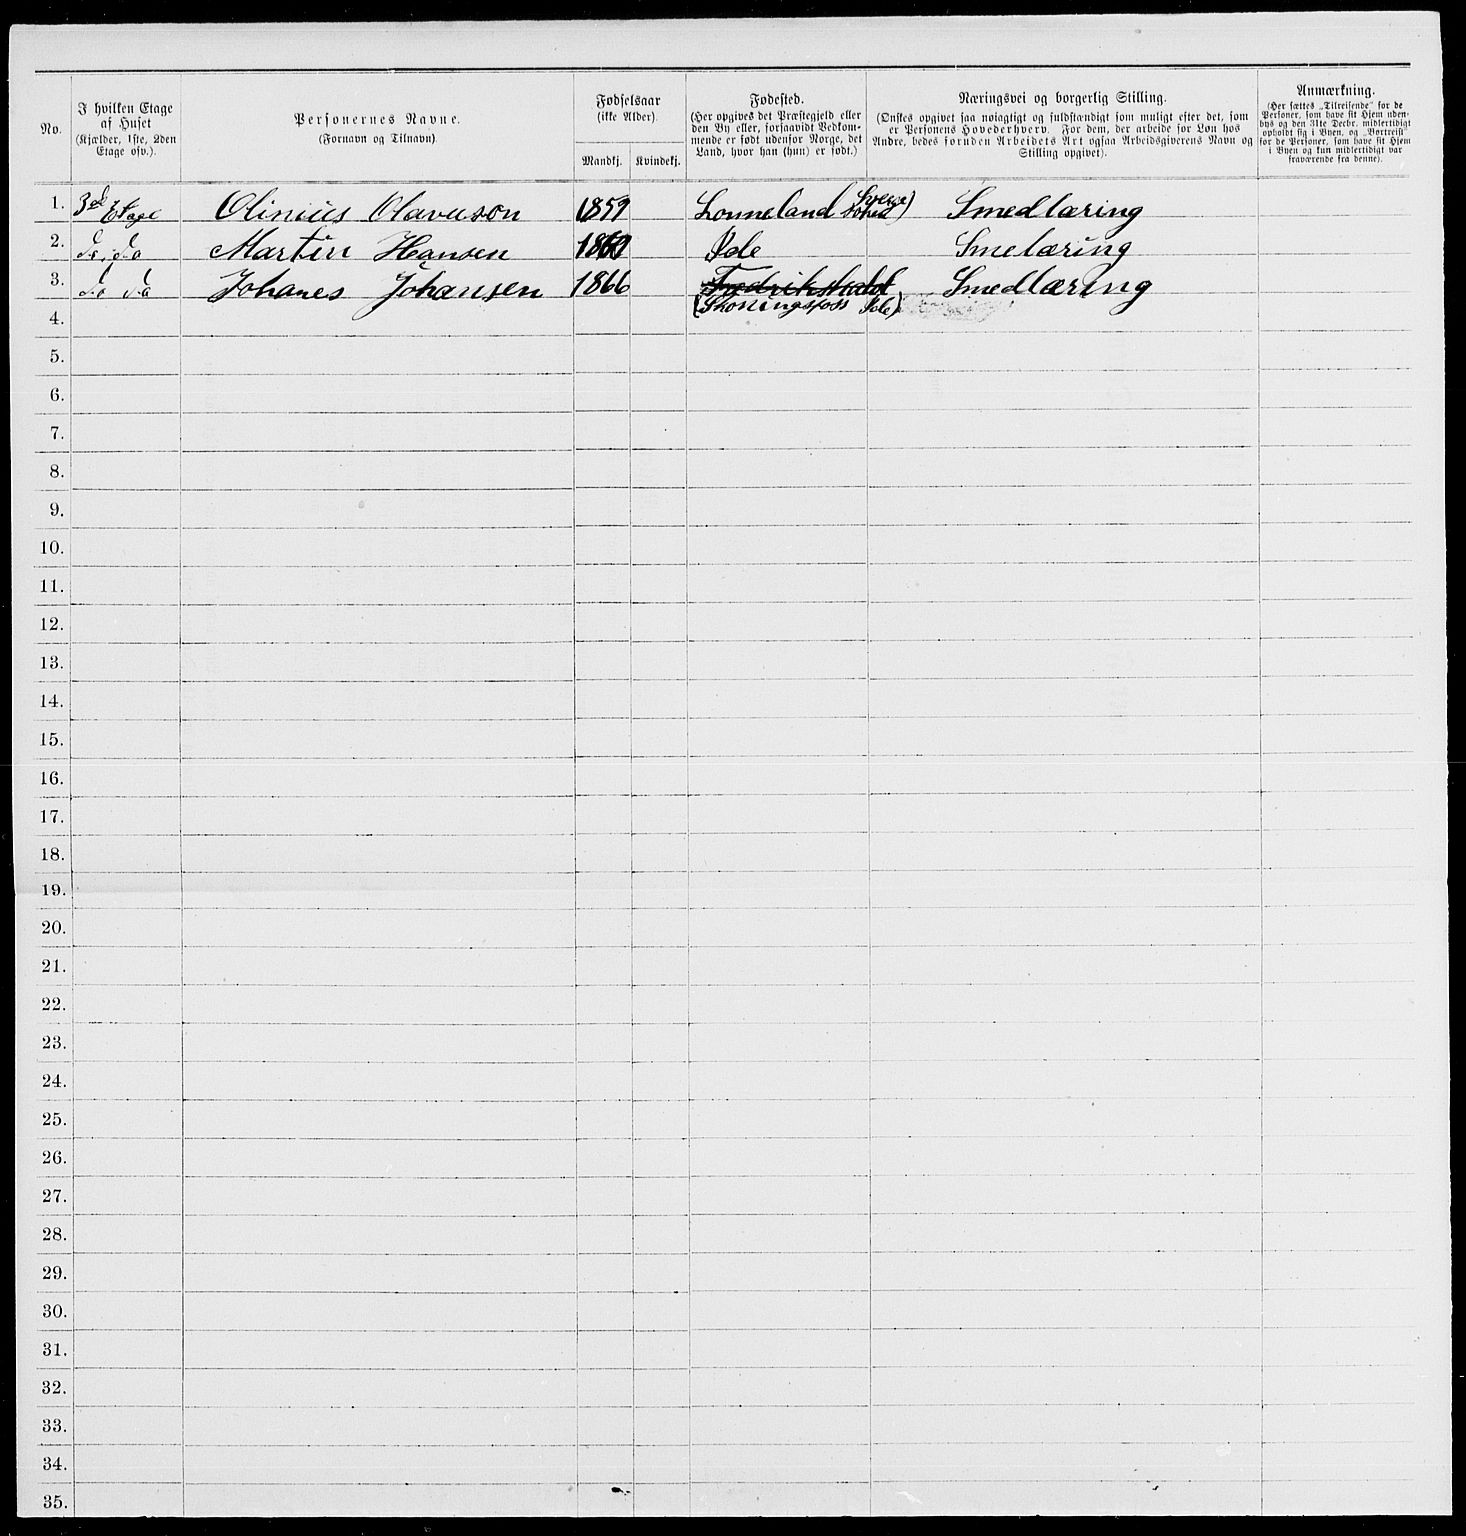 No.
I hvilken Etage
af Huset
(Kjælder, 1ste, 2den
Etage osv.).
Personernes Navne.
(Fornavn og Tilnavn).
Fødselsaar
(ikke Alder).
Mandkj. Kvindekj.
Fødested.
(Her opgives det Præstegjeld eller
den By eller, forsaavidt Vedkom-
mende er født udenfor Norge, det
Land, hvor han (hun) er født.)
Næringsvei og borgerlig Stilling.
(Ønskes opgivet saa nøiagtigt og fuldstændigt som muligt efter det, som
er Personens Hovederhverv. For dem, der arbeide for Løn hos
Andre, bedes foruden Arbeidets Art ogsaa Arbeidsgiverens Navn og
Stilling opgivet).
Anmærkning.
(Her sættes „Tilreisende" for de
Personer, som have sit Hjem uden-
bys og den 31te Decbr. midlertidigt
opholdt sig i Byen, og „Bortreist"
for de Personer, som have sit Hjem
i Byen og kun midlertidigt var
fraværende fra denne).
1. 3de Etage Olinius Olavuson 1859 Lonneland Sverige) Smedlæring
2. do do Martin Hansen Ide Smelæring
3. do do Johanes Johansen 1866 Fredrikshald Smedlæring
4. (Skonningsfoss Ide)
5.
6.
7.
8.
9.
10.
11.
12.
13.
14.
15.
16.
17.
18.
19.
20.
21.
22.
23.
24.
25.
26.
27.
28.
29.
30.
31.
32.
33.
34.
35.